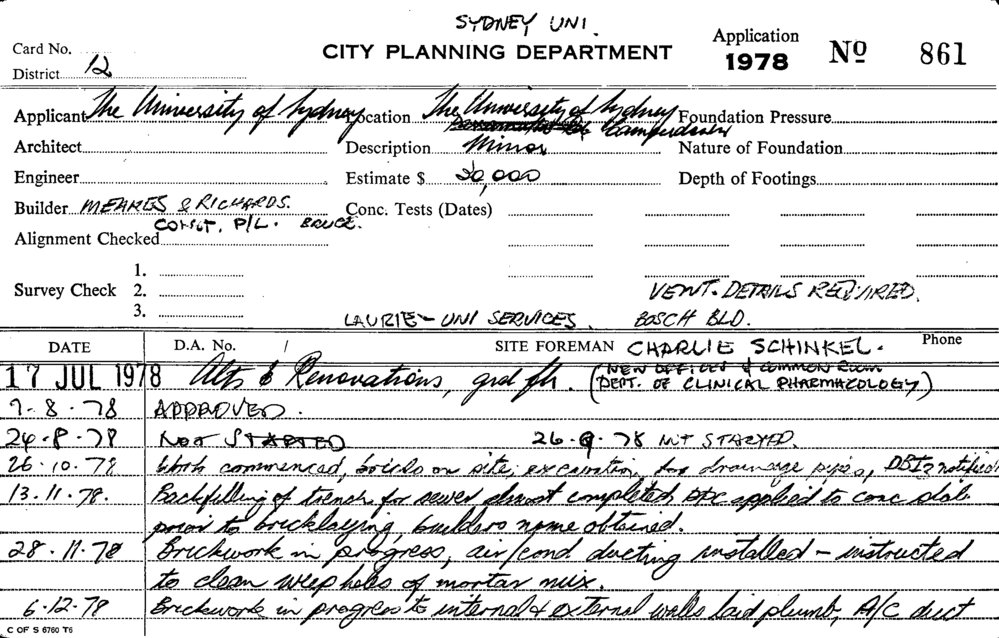 SYDNEY UNI.
CITY PLANNING DEPARTMENT
Application
1978 No 861
Card No.
District 12
Applicant The University of Sydney Location The University of Sydney Foundation Pressure
Camperdown
Architect Description Minor Nature of Foundation
Engineer Estimate $ 20,000 Depth of Footings
Builder MEARES & RICHARDS. Conc. Tests (Dates)
CONST. P/L. BRUCE.
Alignment Checked
1.
Survey Check 2. VENT. DETAILS REQUIRED.
3. LAURIE - UNI SERVICES. BOSCH BLD.
DATE D.A. No. / SITE FOREMAN CHARLIE SCHINKEL. Phone
17 JUL 1978 Alts & Renovations, grd flr. (NEW OFFICES & COMMON ROOM
DEPT. OF CLINICAL PHARMACOLOGY)
9-8-78 APPROVED.
24-8-78 NOT STARTED 26-9-78 NOT STARTED.
26-10-78 Work commenced, bricks on site, excavation for drainage pipes, notified
13.11.78. Backfilling of trench for sewer almost completed, DPC applied to conc slab
prior to bricklaying, builders name obtained.
28.11.78 Brickwork in progress, air/cond ducting installed - instructed
to clean weep holes of mortar mix.
6.12.78 Brickwork in progress to internal & external walls laid plumb, A/C duct
C OF S 6760 T6